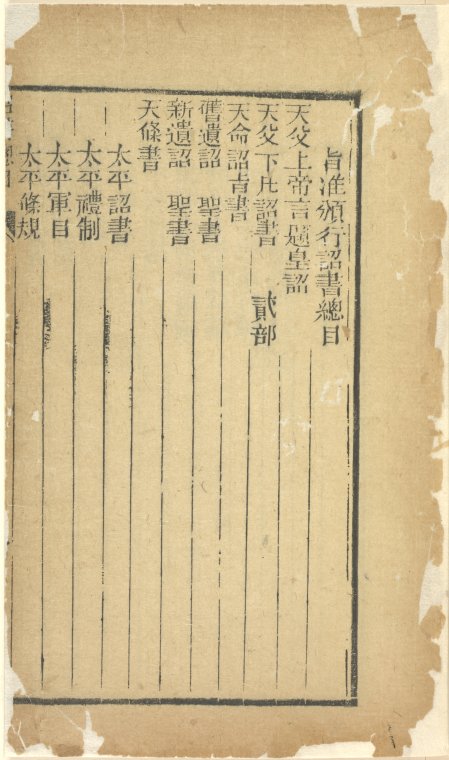 旨准頒行詔書總目
天父上帝言題皇詔
天父下凡詔書 貳部
天命詔旨書
舊遺詔 聖書
新遺詔 聖書
天條書
太平詔書
太平禮制
太平軍目
太平條規